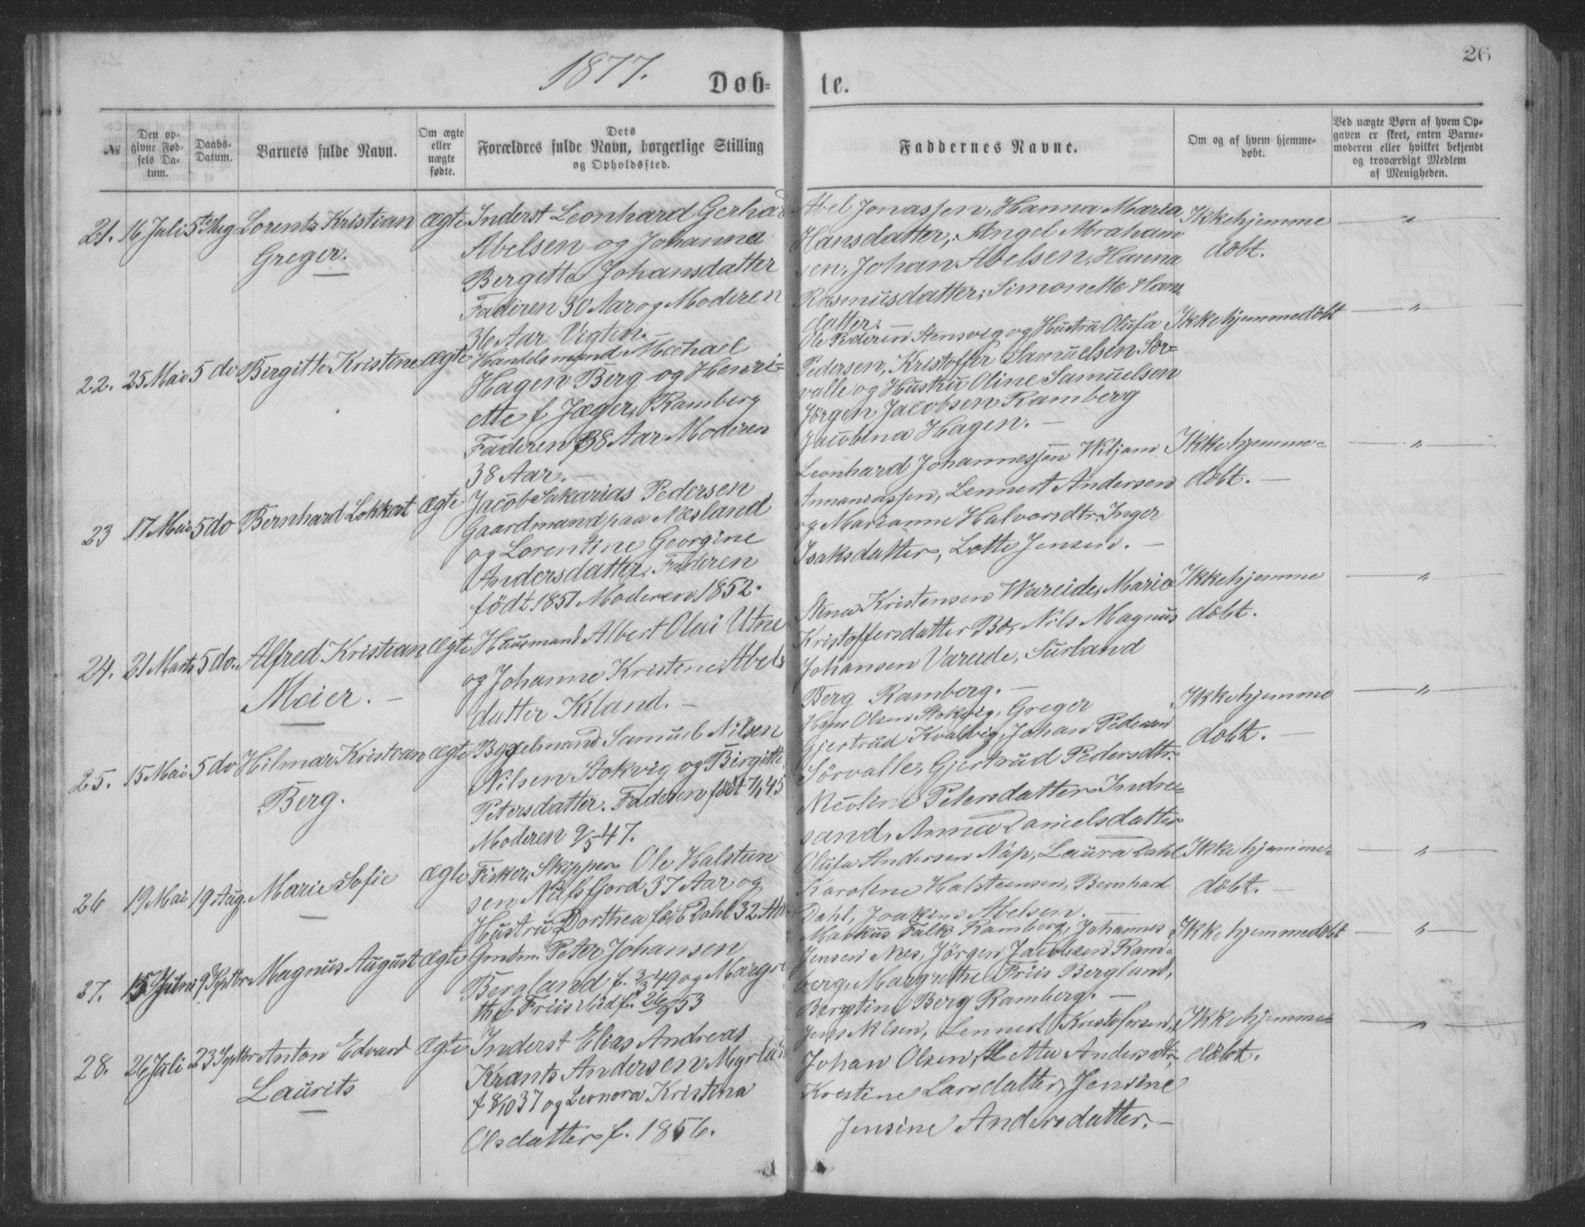 1877.
Døb- te.
26
№
Den op-
givne Fød-
sels Da-
tum.
Daabs-
Datum.
Barnets fulde Navn.
Om ægte
eller
uægte
fødte.
Dets
Forældres fulde Navn, borgerlige Stilling
og Opholdssted.
Faddernes Navne.
Om og af hvem hjemme-
døbt.
Ved uægte Børn af hvem Op-
gaven er skeet, enten Barne-
moderen eller hvilket bekjendt
og troværdigt Medlem
af Menigheden.
21. 16 Juli 5te Aug Lorents Kristian
Greger.
ægte
Inderst Leonhard Gerhard
Abelsen og Johanna
Bergitta Johansdatter
Faderen 30 Aar og Moderen
36 Aar Vigten.
Abel Jonassen, Hanna Maria
Hansdatter, Angel Abraham
sen, Johan Abelsen, Hanna
Rasmusdatter, Simonette Hans
datter.
Ikke hjemme
døbt.
"
22. 25 Mai 5 do Birgitte Kristine
ægte
Handelsmand Michael
Hagen Berg og Henri-
ette f. Jæger, Ramberg
Faderen 38 Aar Moderen
38 Aar.
Ole Pedersen Stensvig og Hustru Olufa
Pedersen, Kristoffer Samuelsen Sør-
valle og Hustru Oline Samuelsen
Jørgen Jacobsen Ramberg
Jacobina Hagen.
Ikke hjemmedøbt
"
23 17 Mai 5 do Bernhard Lokkert
ægte
Jacob Sakarias Pedersen
Gaardmand paa Næsland
og Lorentine Georgine
Andersdatter. Faderen
født 1851 Moderen 1852.
Leonhard Johannessen Wiljam
Annanassen, Lennert Andersen
og Marianne Halvorsdtr, Inger
Isaksdatter, Lotte Jensen.
Ikke hjemme-
døbt.
"
24. 21 Marts 5 do. Alfred Kristian
Meier.
ægte
Huusmand Albert Olai Utne
og Johanne Kristine Abels
datter Kiland.
Kristensen Wareide, Maria
Kristoffersdatter Bø, Nils Magnus
Johansen Vareide,
Berg Ramberg.
Ikke hjemme
døbt.
"
25. 15 Mai 5 do Hilmar Kristian
Berg.
ægte
Bygselmand Samuel Nilsen
Nilsen Stokvig og Birgitte
Petersdatter. Faderen født 7/1 45
Moderen 9/5 47.
Olsen Stokvig, Greger
Gjertrud Kvalvig, Johan Pedersen
Sørvalle, Gjertrud Pedersdtr.
Nicoline Petersdatter Indre-
sand, Anna Danielsdatter
Ikke hjemme
døbt.
"
26 19 Mai 19 Aug. Marie Sofie
ægte
Fisker, Skipper Ole Halstein
sen Næsfjord 37 Aar og
Hustru Dorthea født Dahl 32 Aar
Olufa Andersen Nap, Laura Dahl
Karoline Halsteensen, Bernhard
Dahl, Joakim Abelsen.
Ikke hjemme-
døbt.
"
27. 15 Juni 9 Septbr Magnus August
ægte
Gmdm. Peter Johansen
Bergland f. 49 og Margre
the Friis f. 53
Markus Falk Ramberg, Johannes
Jensen Næs, Jørgen Jacobsen Ram-
berg, Margrethe Friis Bergland,
Bergitine Berg Ramberg.
Ikke hjemmedøbt
"
28. 26 Juli 23 Septbr Anton Edvard
Laurits
ægte
Inderst Elias Andreas
Krants Andersen Myrland
f 8/10 37 og Leonora Kristina
Olsdatter f. 1856.
Jens Nilsen, Lennert Kristofersen,
Johan Olsen, Andersdtr,
Kristine Larsdatter, Jensine
Jensine Andersdatter.
Ikke hjemme-
døbt.
"